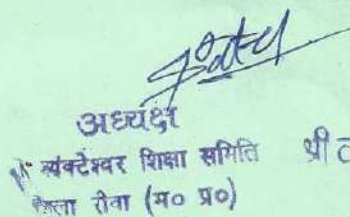 अध्यक्ष
व्यंकटेश्वर शिक्षा समिति श्री
जिला रीवा (म० प्र०)